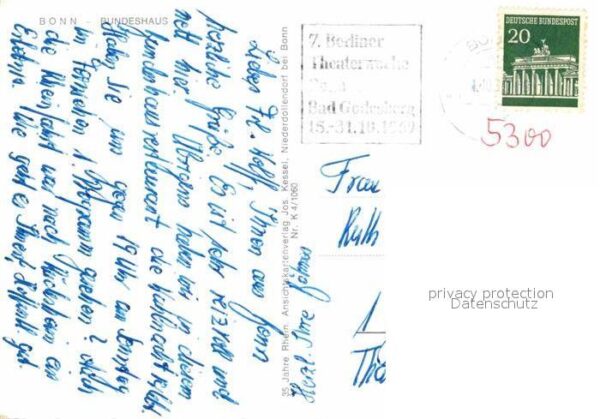 BONN - BUNDESHAUS
Liebes Frl. Wolf, Ihnen aus Bonn
herzliche Grüße. Es ist sehr reizvoll und
nett hier. Übrigens haben wir in diesem
Bundeshausrestaurant die
Haben Sie um 19 Uhr am Sonntag
im Fernsehen 1. Programm gesehen?
die Rheinfahrt war nach Rüdesheim ein
Erlebnis. Wie geht es Ihnen, hoffentlich gut.
Herzl. Ihre
35 Jahre Rhein. Ansichtskartenverlag Jos. Kessel, Niederdollendorf bei Bonn
Nr. K 4/1060
7. Berliner
Theaterwoche
Bad Godesberg
15.-31.10.1969
DEUTSCHE BUNDESPOST
20
5300
Frau
Ruth
1
privacy protection
Datenschutz